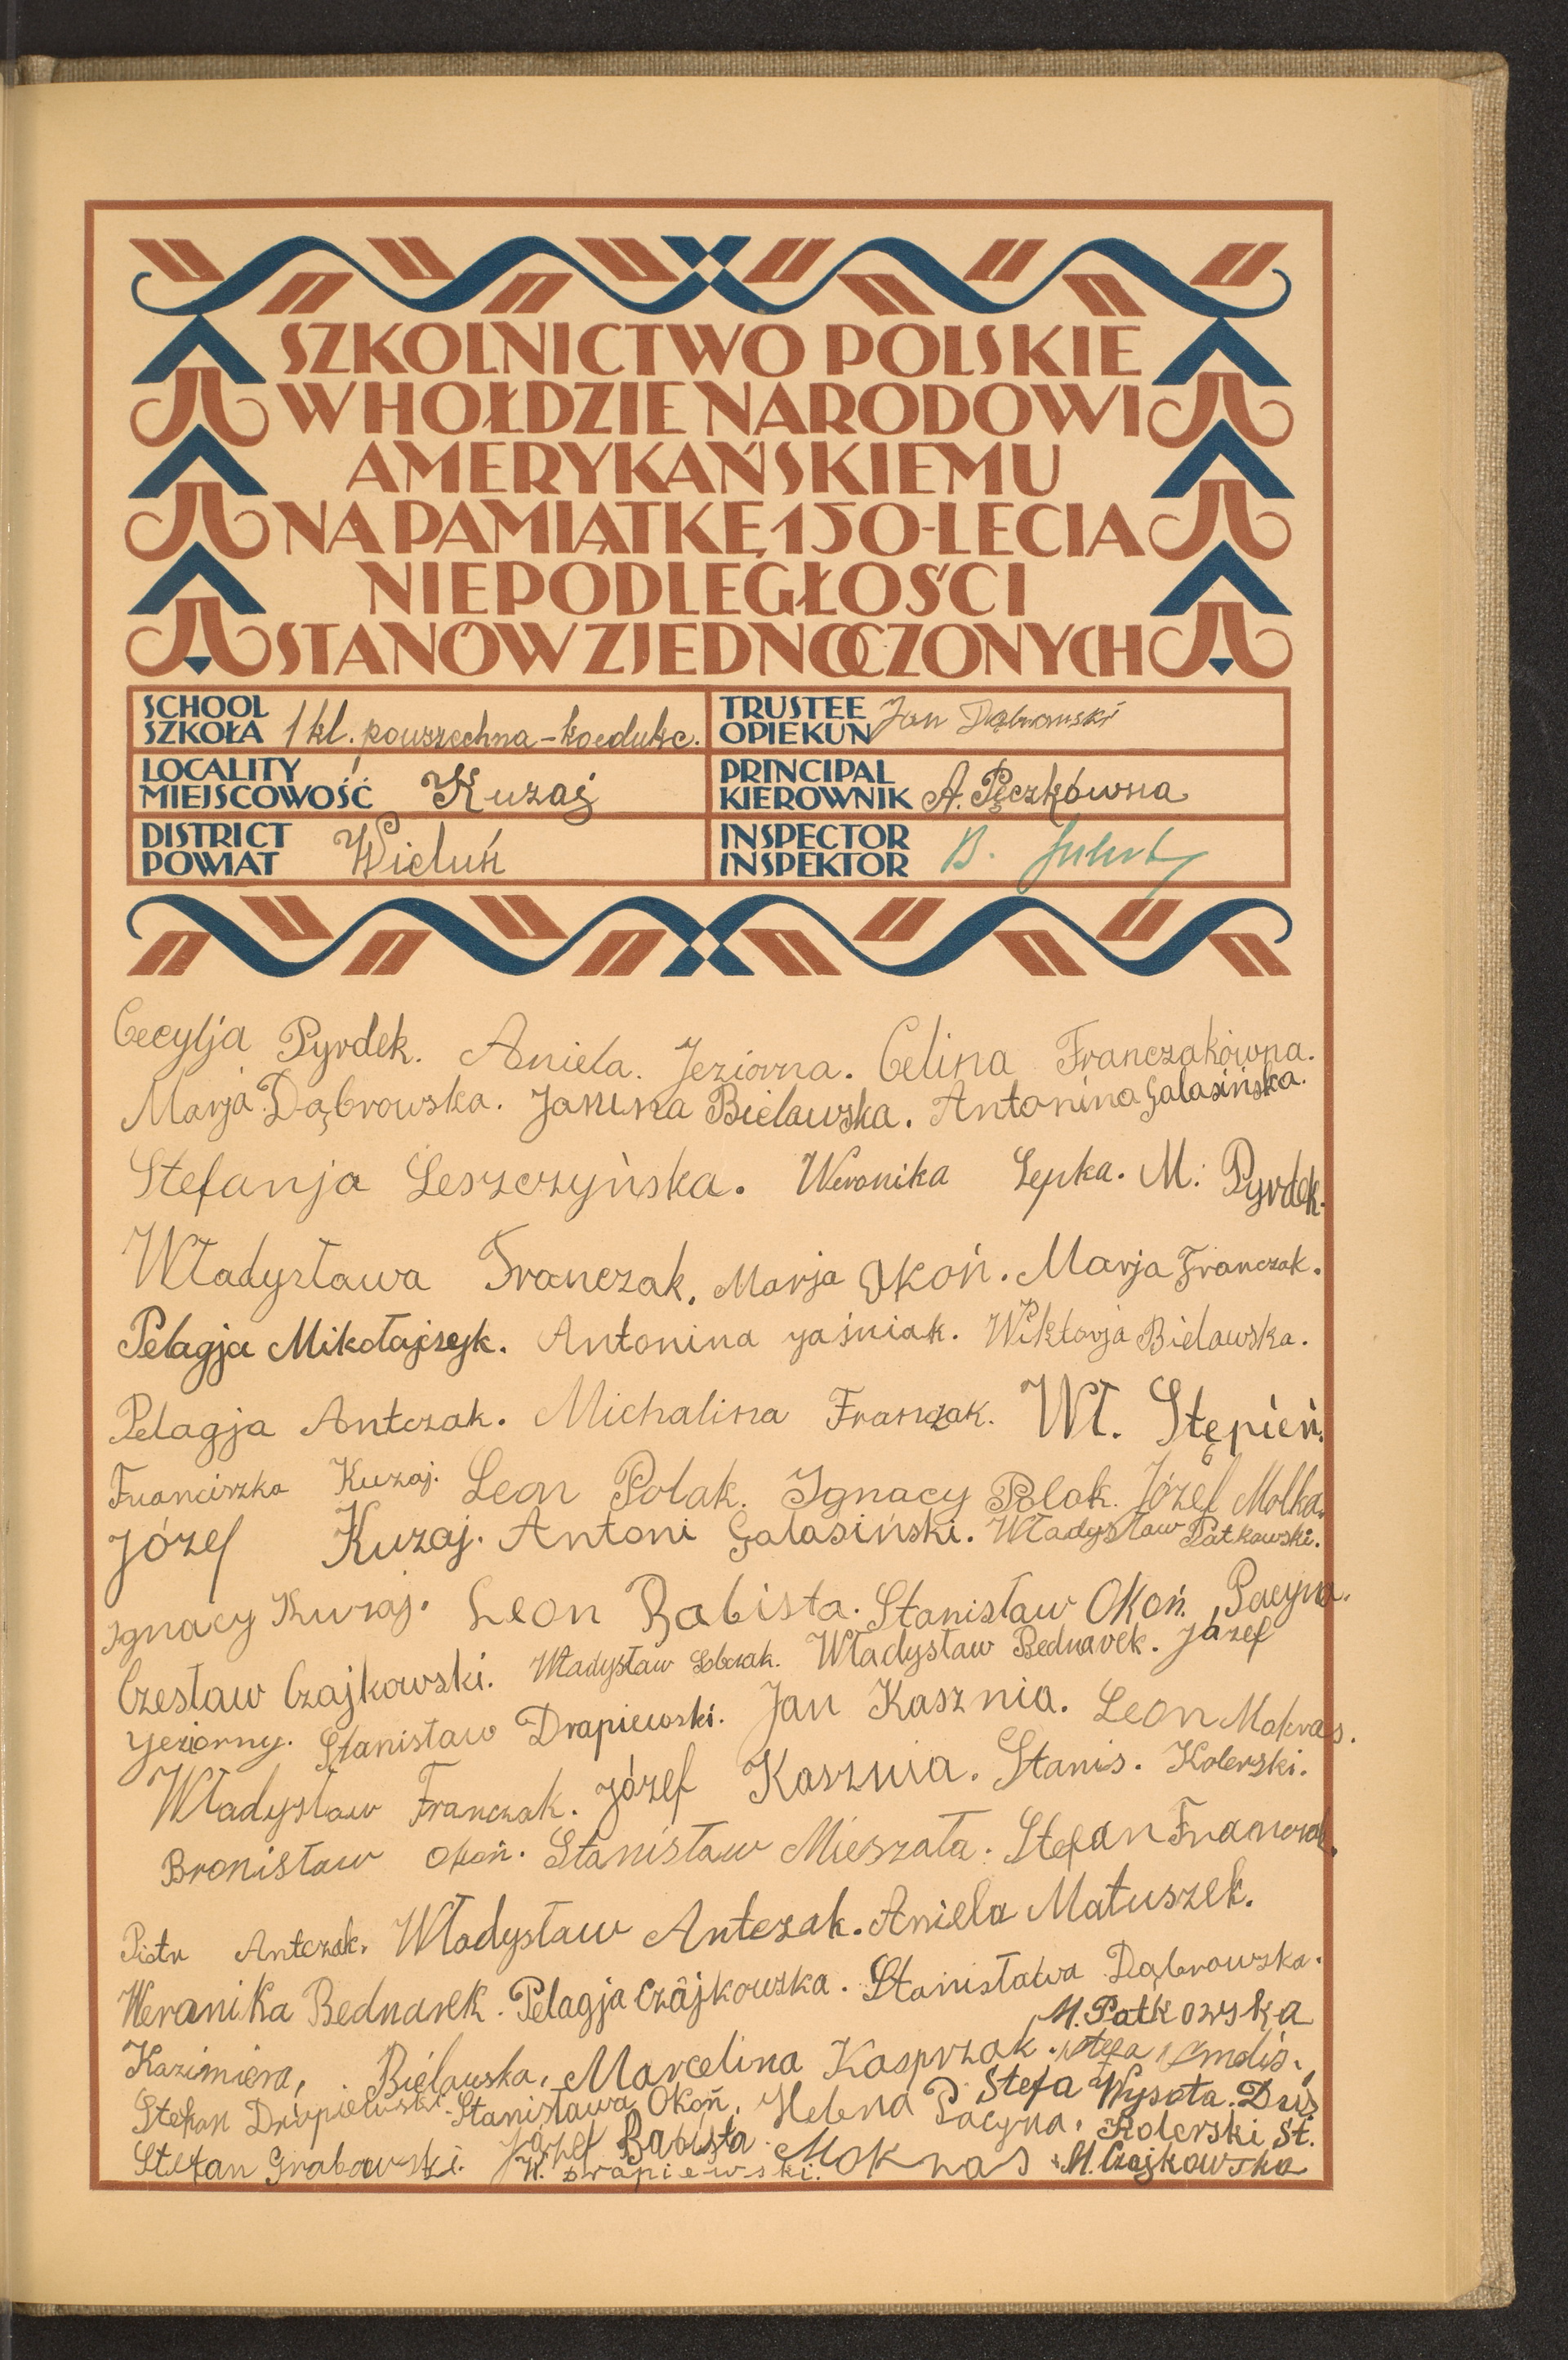 SZKOLNICTWO POLSKIE
W HOŁDZIE NARODOWI
AMERYKAŃSKIEMU
NA PAMIĄTKĘ 150-LECIA
NIEPODLEGŁOŚCI
STANÓW ZJEDNOCZONYCH
SCHOOL
SZKOŁA 1 kl. powszechna-koedukc.
TRUSTEE
OPIEKUN Jan Dąbrowski
LOCALITY
MIEJSCOWOŚĆ Kuzaj
PRINCIPAL
KIEROWNIK A. Pęczkówna
DISTRICT
POWIAT Wieluń
INSPECTOR
INSPEKTOR B.
Cecylja Pyrdek. Aniela. Jeziorna. Celina Franczakówna.
Marja Dąbrowska. Janina Bielawska. Antonina Galasińska.
Stefanja Leszczyńska. Weronika Lepka. M. Pyrdek.
Władysława Franczak. Marja Okoń. Marja Franczak.
Pelagja Mikołajczyk. Antonina Jaśniak. Wiktorja Bielawska.
Pelagja Antczak. Michalina Franczak. Wł. Stępień.
Franciszka Kuzaj. Leon Polak. Ignacy Polak. Józef Molka.
Józef Kuzaj. Antoni Galasiński. Władysław Patkowski.
Ignacy Kuzaj. Leon Babista. Stanisław Okoń. Pacyna.
Czesław Czajkowski. Władysław Władysław Bednarek. Józef
Jeziorny. Stanisław Drapiewski. Jan Kasznia. Leon Mokras.
Władysław Franczak. Józef Kasznia. Stanis. Kolerski.
Bronisław Okoń. Stanisław Mieszała. Stefan Franczak.
Piotr Antczak. Władysław Antczak. Aniela Matuszek.
Weranika Bednarek. Pelagja Czajkowska. Stanisława Dąbrowska.
M. Patkowska
Kazimiera, Bielawska, Marcelina Kasprzak.
Stefan Drapiewski. Stanisława Okoń, Helena Pacyna. Stefa Wysota. Duś
Stefan Grabowski. Józef Babista. Mokras Kolerski St.
W. Drapiewski. M. Czajkowska